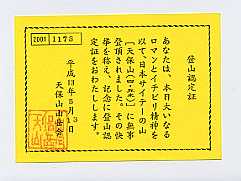 登山認定証
あなたは、本日大いなる
ロマンとイチビリ精神を
以て、日本サイテーの山
［天保山（四・五米）］に無事
登頂されました。その快
挙を称え、記念に登山認
定証をおわたしします。
平成13年5月3日
天保山山岳会
2001 1173